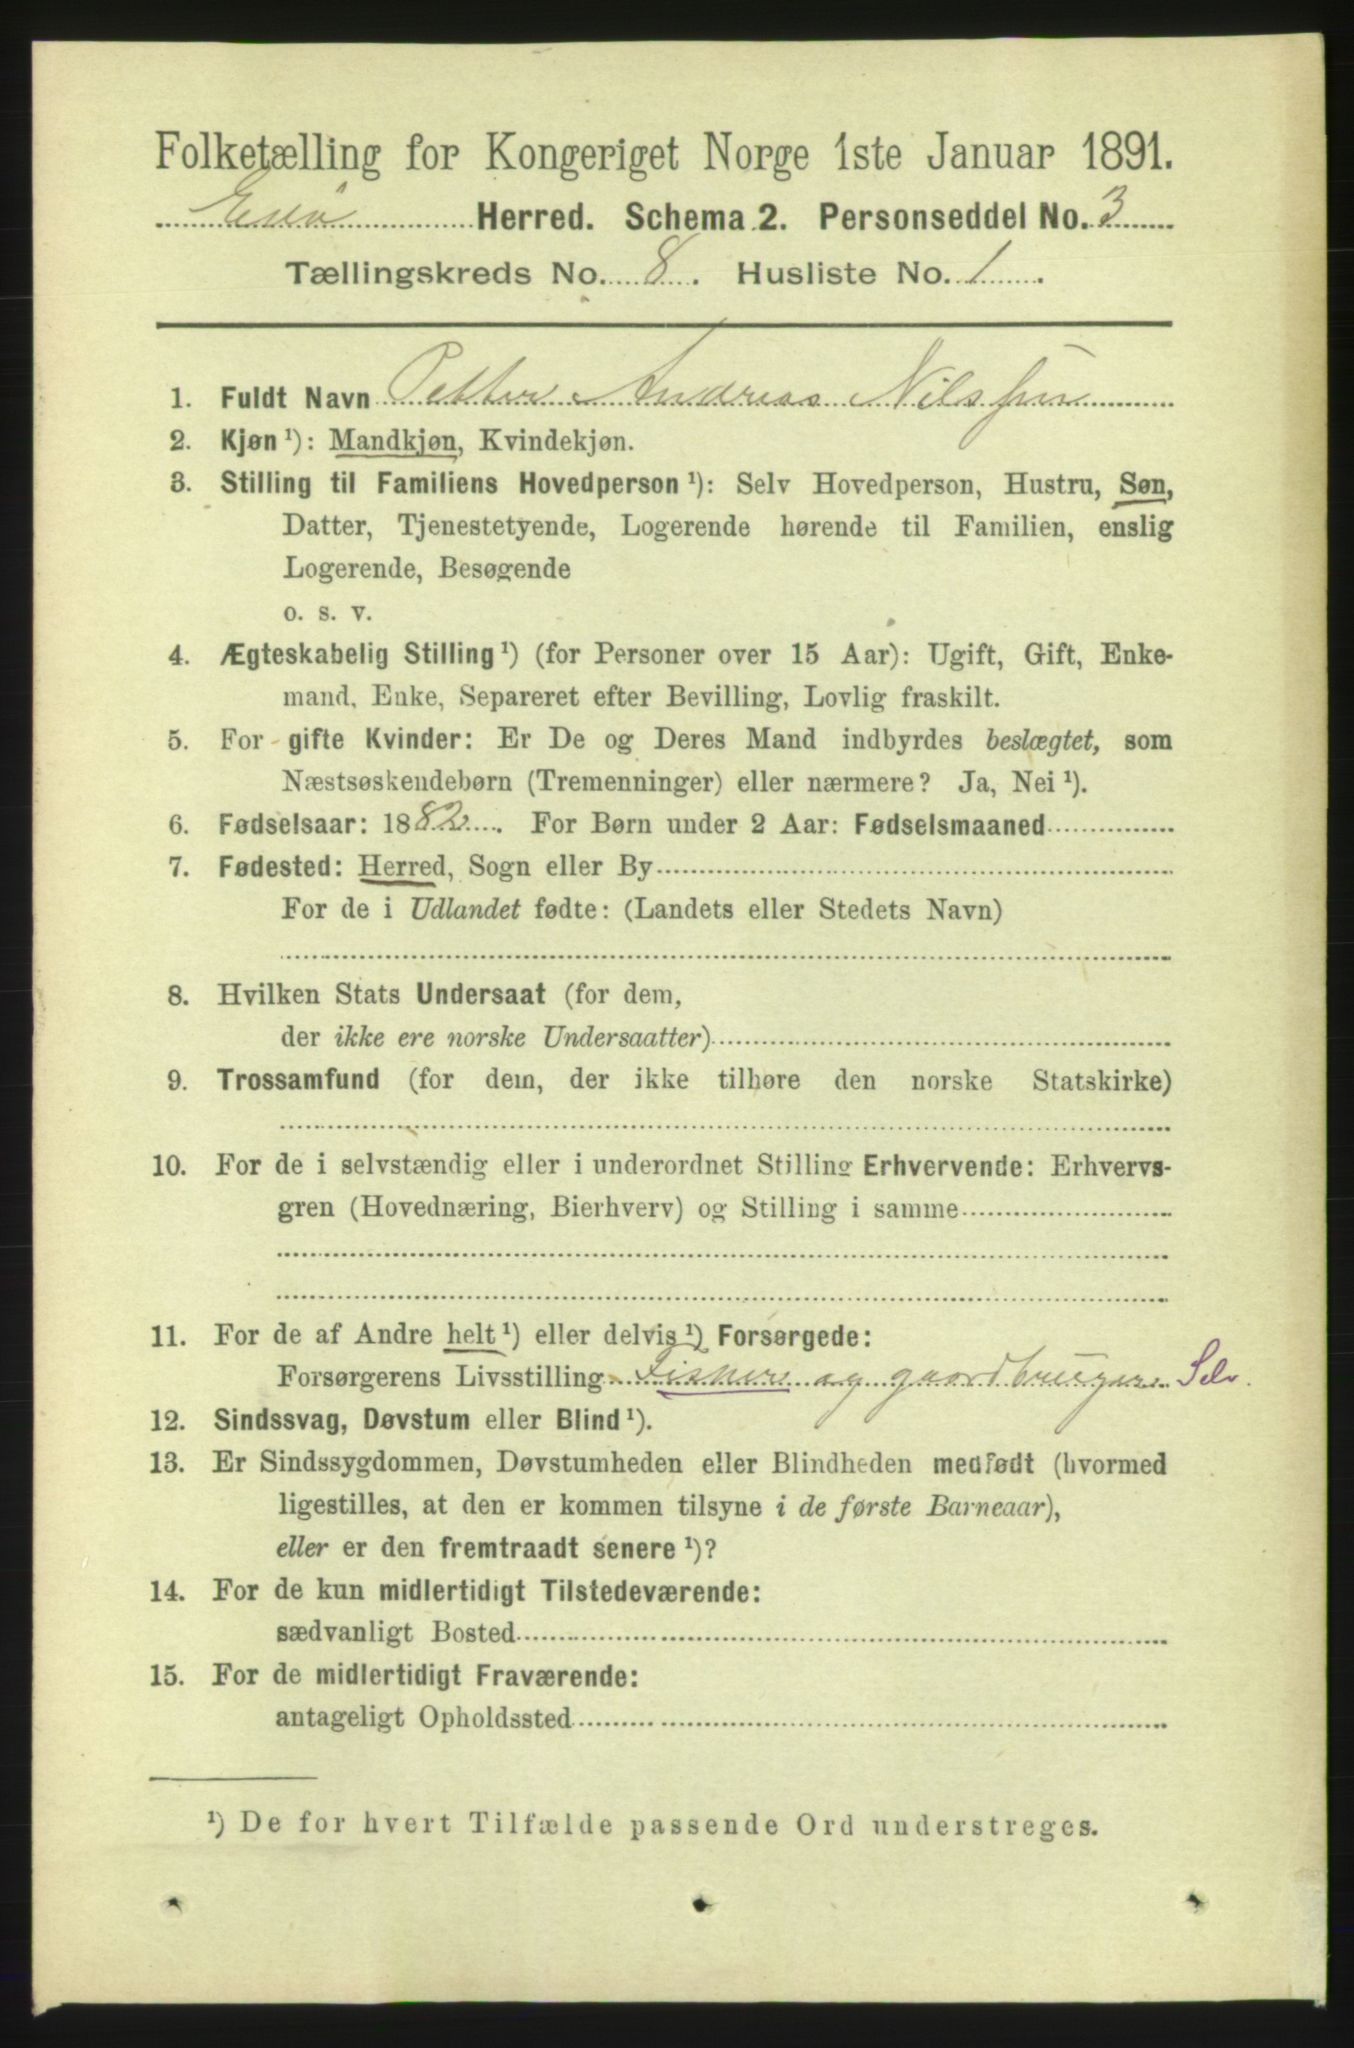 Folketælling for Kongeriget Norge 1ste Januar 1891.
Edø Herred. Schema 2. Personseddel No. 3
Tællingskreds No. 8. Husliste No. 1.
1. Fuldt Navn Petter Andreas Nilssen
2. Kjøn ¹): Mandkjøn, Kvindekjøn.
3. Stilling til Familiens Hovedperson ¹): Selv Hovedperson, Hustru, Søn,
Datter, Tjenestetyende, Logerende hørende til Familien, enslig
Logerende, Besøgende
o. s. v.
4. Ægteskabelig Stilling ¹) (for Personer over 15 Aar): Ugift, Gift, Enke-
mand, Enke, Separeret efter Bevilling, Lovlig fraskilt.
5. For gifte Kvinder: Er De og Deres Mand indbyrdes beslægtet, som
Næstsøskendebørn (Tremenninger) eller nærmere? Ja, Nei ¹).
6. Fødselsaar: 1882. For Børn under 2 Aar: Fødselsmaaned
7. Fødested: Herred, Sogn eller By
For de i Udlandet fødte: (Landets eller Stedets Navn)
8. Hvilken Stats Undersaat (for dem,
der ikke ere norske Undersaatter)
9. Trossamfund (for dem, der ikke tilhøre den norske Statskirke)
10. For de i selvstændig eller i underordnet Stilling Erhvervende: Erhvervs-
gren (Hovednæring, Bierhverv) og Stilling i samme
11. For de af Andre helt ¹) eller delvis ¹) Forsørgede:
Forsørgerens Livsstilling Fisker og gaardbruger Selv.
12. Sindssvag, Døvstum eller Blind ¹).
13. Er Sindssygdommen, Døvstumheden eller Blindheden medfødt (hvormed
ligestilles, at den er kommen tilsyne i de første Barneaar),
eller er den fremtraadt senere ¹)?
14. For de kun midlertidigt Tilstedeværende:
sædvanligt Bosted
15. For de midlertidigt Fraværende:
antageligt Opholdssted
¹) De for hvert Tilfælde passende Ord understreges.